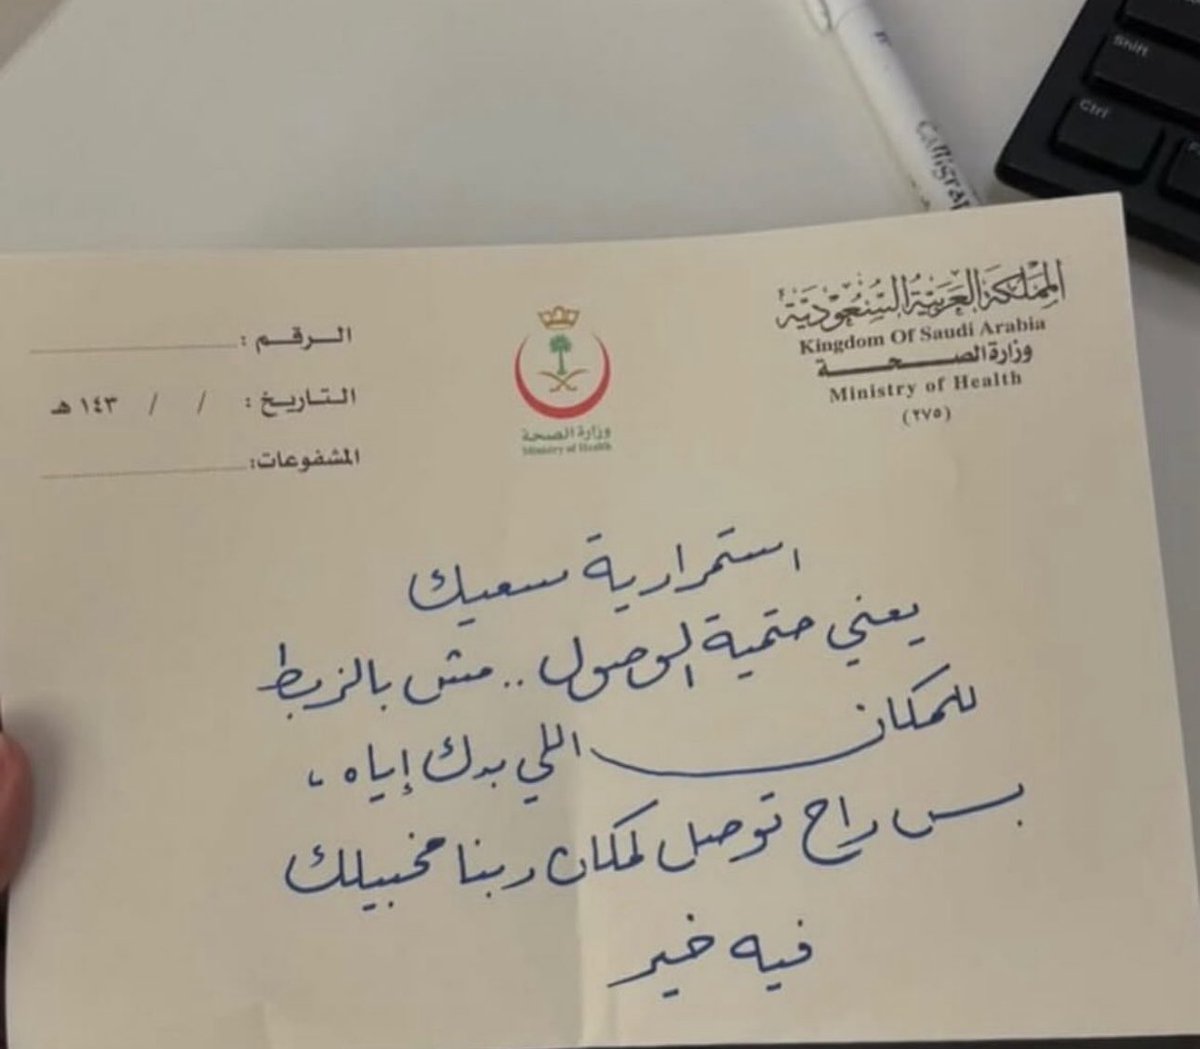 Shift
Ctrl
Calligra
المملكة العربية السعودية
Kingdom Of Saudi Arabia
وزارة الصحة
Ministry of Health
(٢٧٥)
وزارة الصحة
Ministry of Health
الرقم :
التاريخ : / / ١٤٣ هـ
المشفوعات:
استمرارية سعيك
يعني حتمية الوصول .. مش بالزبط
للمكان اللي بدك إياه ،
بس راح توصل لمكان ربنا مخبيلك
فيه خير